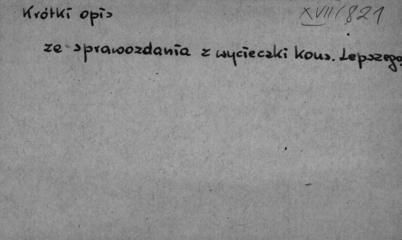 Krótki opis XVII/821
ze sprawozdania z wycieczki kons. Lepszego